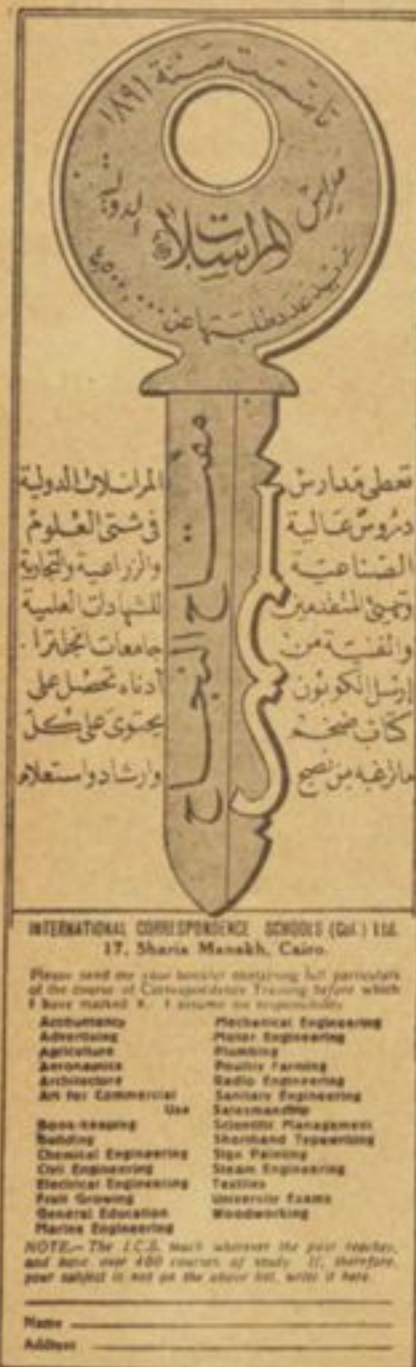 تأسست سنة ١٨٩١
مدارس المراسلات الدولية
يزيد عدد طلبتها عن ٤,٥٠٠,٠٠٠
مفتاح النجاح
تعطى مدارس المراسلات الدولية
دروس عالية فى شتى العلوم
الصناعية والزراعية والتجارية
وتهيئ المتقدمين للشهادات العلمية
والفنية من جامعات انجلترا .
ارسل الكوبون أدناه تحصل على
كتاب ضخم يحتوى على كل
ماترغبه من نصح وارشاد واستعلام
INTERNATIONAL CORRESPONDENCE SCHOOLS (Col.) Ltd.
17, Sharia Manakh, Cairo.
Please send me your booklet containing full particulars
of the course of Correspondence Training before which
I have marked X. I assume no responsibility
Accountancy
Advertising
Agriculture
Aeronautics
Architecture
Art for Commercial
Use
Book-keeping
Building
Chemical Engineering
Civil Engineering
Electrical Engineering
Fruit Growing
General Education
Marine Engineering
Mechanical Engineering
Motor Engineering
Plumbing
Poultry Farming
Radio Engineering
Sanitary Engineering
Salesmanship
Scientific Management
Shorthand Typewriting
Sign Painting
Steam Engineering
Textiles
University Exams
Woodworking
NOTE.- The I.C.S. teach wherever the post reaches,
and have over 400 courses of study. If, therefore,
your subject is not on the above list, write it here.
Name
Address